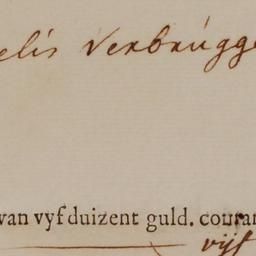 elis Verbrugge
van vyf duizent guld. couran
vijf